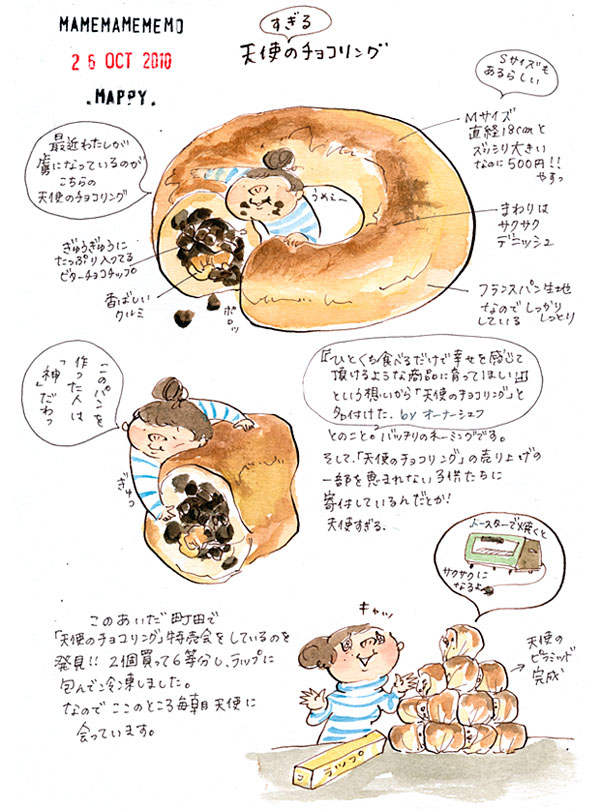 MAMEMAMEMEMO
26 OCT 2010
.MAPPY.
すぎる
天使のチョコリング
Sサイズも
あるらしい
最近わたしが
虜になっているのが
こちらの
天使のチョコリング
Mサイズ
直経18cmと
ズッシリ大きい
なのに500円!!
やすっ
うめぇ〜
まわりは
サクサク
デニッシュ
ぎゅうぎゅうに
たっぷり入ってる
ビターチョコチップ
香ばしい
クルミ
ポロッ
フランスパン生地
なのでしっかり
している しっとり
このパンを
作った人は
「神」だわっ
ぎゅっ
『ひとくち食べるだけで幸せを感じて
頂けるような商品に育ってほしい』
という想いから「天使のチョコリング」と
名付けた。by オーナーシェフ
とのこと。バッチリのネーミングです。
そして、「天使のチョコリング」の売り上げの
一部を恵まれない子供たちに
寄付しているんだとか!
天使すぎる、
トースターで焼くと
サクサクに
なるよ
このあいだ町田で
「天使のチョコリング」特売会をしているのを
発見!! 2個買って6等分し、ラップに
包んで冷凍しました。
なので ここのところ毎朝天使に
会っています。
キャッ
天使の
ピラミッド
完成
ラップ